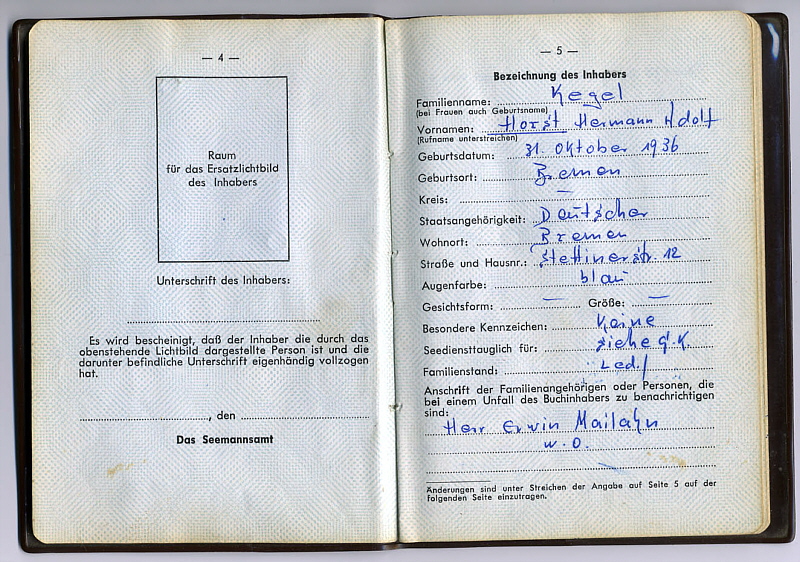 — 4 —
Raum
für das Ersatzlichtbild
des Inhabers
Unterschrift des Inhabers:
Es wird bescheinigt, daß der Inhaber die durch das
obenstehende Lichtbild dargestellte Person ist und die
darunter befindliche Unterschrift eigenhändig vollzogen
hat.
, den
Das Seemannsamt
— 5 —
Bezeichnung des Inhabers
Familienname: Kegel
(bei Frauen auch Geburtsname)
Vornamen: Horst Hermann Adolf
(Rufname unterstreichen)
Geburtsdatum: 31. Oktober 1936
Geburtsort: Bremen
Kreis: —
Staatsangehörigkeit: Deutscher
Wohnort: Bremen
Straße und Hausnr.: Stettinerstr. 12
Augenfarbe: blau
Gesichtsform: — Größe: —
Besondere Kennzeichen: Keine
Seediensttauglich für: siehe G.K.
Familienstand: Led.
Anschrift der Familienangehörigen oder Personen, die
bei einem Unfall des Buchinhabers zu benachrichtigen
sind:
Herr Erwin Mailahn
w. o.
Änderungen sind unter Streichen der Angabe auf Seite 5 auf der
folgenden Seite einzutragen.